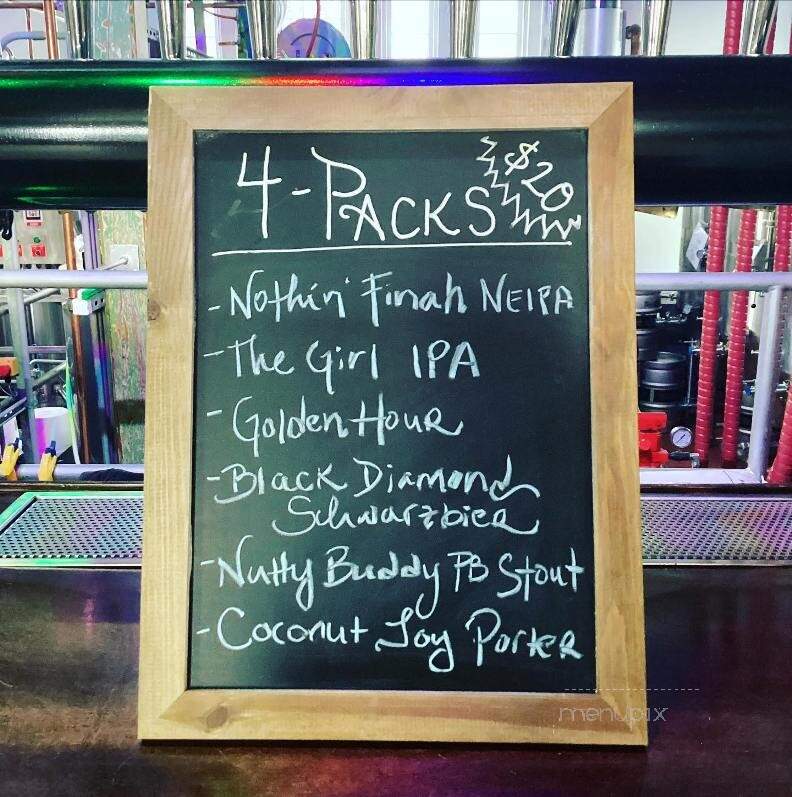 4-Packs $20
- Nothin' Finah NEIPA
- The Girl IPA
- Golden Hour
- Black Diamond
Schwarzbier
- Nutty Buddy PB Stout
- Coconut Joy Porter
menupix